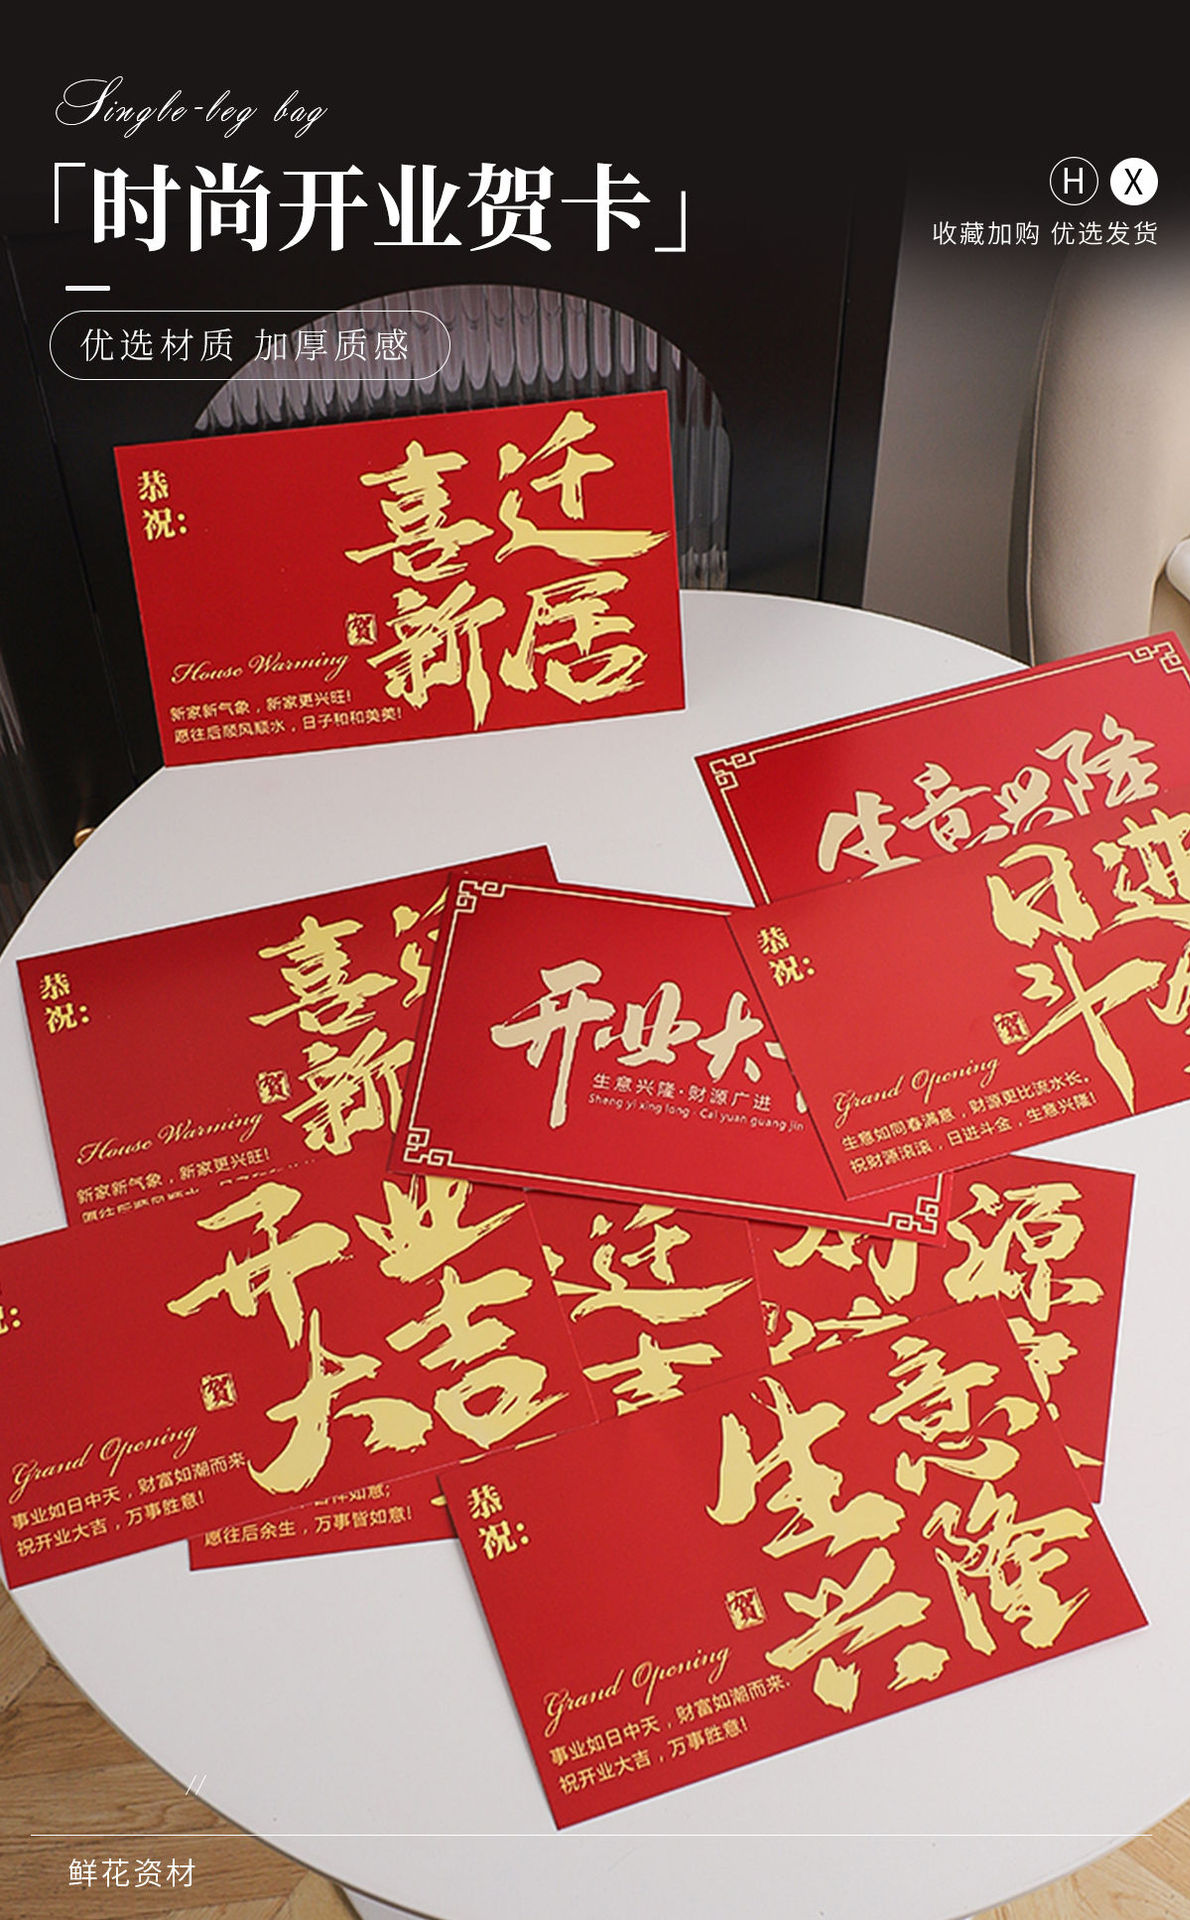 Single-leg bag
「时尚开业贺卡」
H X
收藏加购 优选发货
优选材质 加厚质感
恭祝：
喜迁
新居
贺
House Warming
新家新气象，新家更兴旺!
愿往后顺风顺水，日子和和美美!
生意兴隆
恭祝：
日进
斗
贺
Grand Opening
生意如同春满意，财源更比流水长。
祝财源滚滚，日进斗金，生意兴隆!
恭祝：
喜
新
贺
House Warming
新家新气象，新家更兴旺!
开业大
生意兴隆·财源广进
Sheng yi xing long · Cai yuan guang jin
开业
大吉
贺
Grand Opening
事业如日中天，财富如潮而来，
祝开业大吉，万事胜意!
迁
愿往后余生，万事皆如意!
财源
恭祝：
生意
兴隆
贺
Grand Opening
事业如日中天，财富如潮而来，
祝开业大吉，万事胜意!
鲜花资材